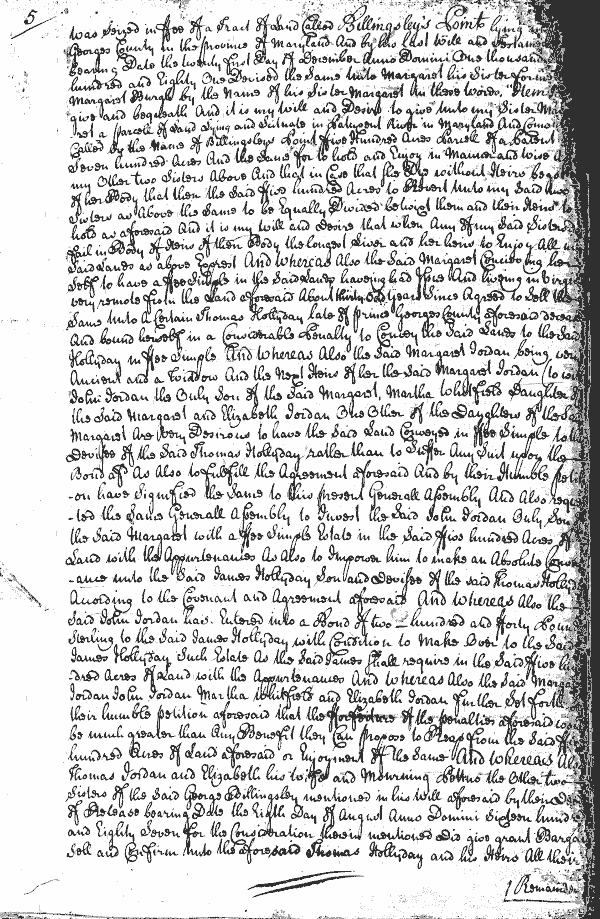 5
was Seized in ffee of a Tract of Land Called Billingsley's Point lying in
Georges County in the province of Maryland And by his Last Will and Testame
bearing Date the twenty first Day of December Anno Domini One thousand
hundred and Eighty One Devised the Same unto Margaret his Sister
Margaret Burgh by the Name of his Sister Margaret in these words. Item
give and bequeath And it is my will and Desire to give unto my Sister Mar
ret a parcell of Land Lying and Scituate in Patuxent River in Maryland And
Called by the Name of Billingsleys Point ffive Hundred Acres Parcell of a Patent
Seven hundred Acres And the Same for to hold and Enjoy in Manner and wise a
my Other two Sisters Above And that in Case that She Dye without Heirs begot
of her Body that then the Said ffive hundred Acres to Revert unto my Said two
Sisters as Above the Same to be Equally Divided betwixt them and their Heirs to
hold as aforesaid And it is my will and Desire that when Any of my Said Sisters
fail in Body of Heirs of their Body the longest Liver and her heirs to Enjoy All
Said Lands as above Exprest And whereas Also the Said Margaret Conceiving her
Self to have a ffee Simple in the Said Lands haveing had Issue And liveing in Virgi
very remote from the Land aforesaid About thirty Six years Since Agreed to Sell the
Same unto a Certain Thomas Hollyday late of Prince Georges County aforesaid decea
And bound herself in a Considerable Penalty to Convey the Said Lands to the Said
Hollyday in ffee Simple And whereas Also the Said Margaret Jordan being very
Ancient and a Widdow And the Next Heirs of her the Said Margaret Jordan (to wit
John Jordan the Only Son of the Said Margaret, Martha Whitfield Daughter of
the Said Margaret and Elizabeth Jordan One Other of the Daughters of the Sa
Margaret Are very Desirous to have the Said Land Conveyed in ffee Simple to th
Devisee of the Said Thomas Hollyday rather than to Suffer Any Suit upon the
Bond afd As Also to fulfill the Agreement aforesaid And by their Humble peti
-on have Signified the Same to this present Generall Assembly And Also reque
-sted the Same Generall Assembly to Invest the Said John Jordan Only Son
the Said Margaret with a ffee Simple Estate in the Said ffive hundred Acres of
Land with the Appurtenances As Also to Impower him to make an Absolute Conve
-ance unto the Said James Hollyday Son and Devisee of the said Thomas Hollyd
According to the Covenant and Agreement aforesaid And whereas Also the
Said John Jordan has Entered into a Bond of two hundred and fforty Poun
Sterling to the Said James Hollyday with Condition to Make Over to the Said
James Hollyday Such Estate As the Said James Shall require in the Said ffive hu
-dred Acres of Land with the Appurtenances And whereas Also the Said Marga
Jordan John Jordan Martha Whitfield and Elizabeth Jordan further Set forth
their humble petition aforesaid that the fforfeiture of the penalties aforesaid wo
be much greater than Any Benefit they Can propose to Reap from the Said ff
hundred Acres of Land aforesaid or Enjoyment of the Same And whereas Als
Thomas Jordan and Elizabeth his wife and Mourning the Other two
Sisters of the Said George Billingsley mentioned in his will aforesaid by their Dee
of Release bearing Date the Eigth Day of August Anno Domini Sixteen hund
and Eighty Seven for the Consideration therein mentioned Did give grant Barga
Sell and Confirm unto the aforesaid Thomas Hollyday and his Heirs All their
/Remainder